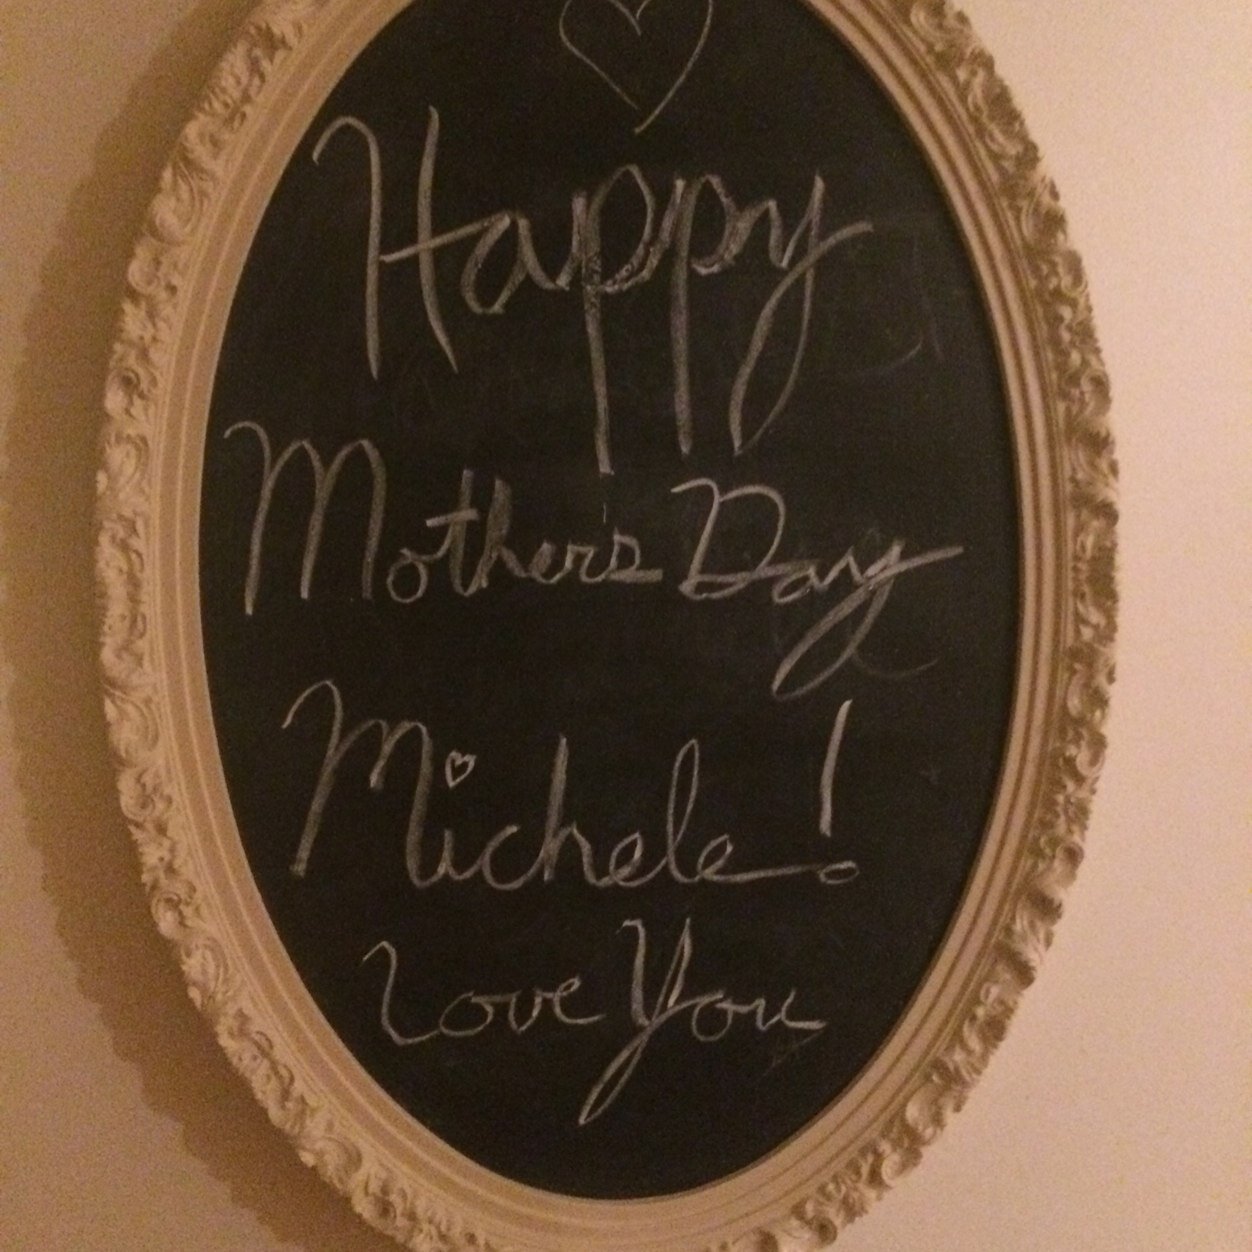 Happy
Mother's Day
Michele!
Love You